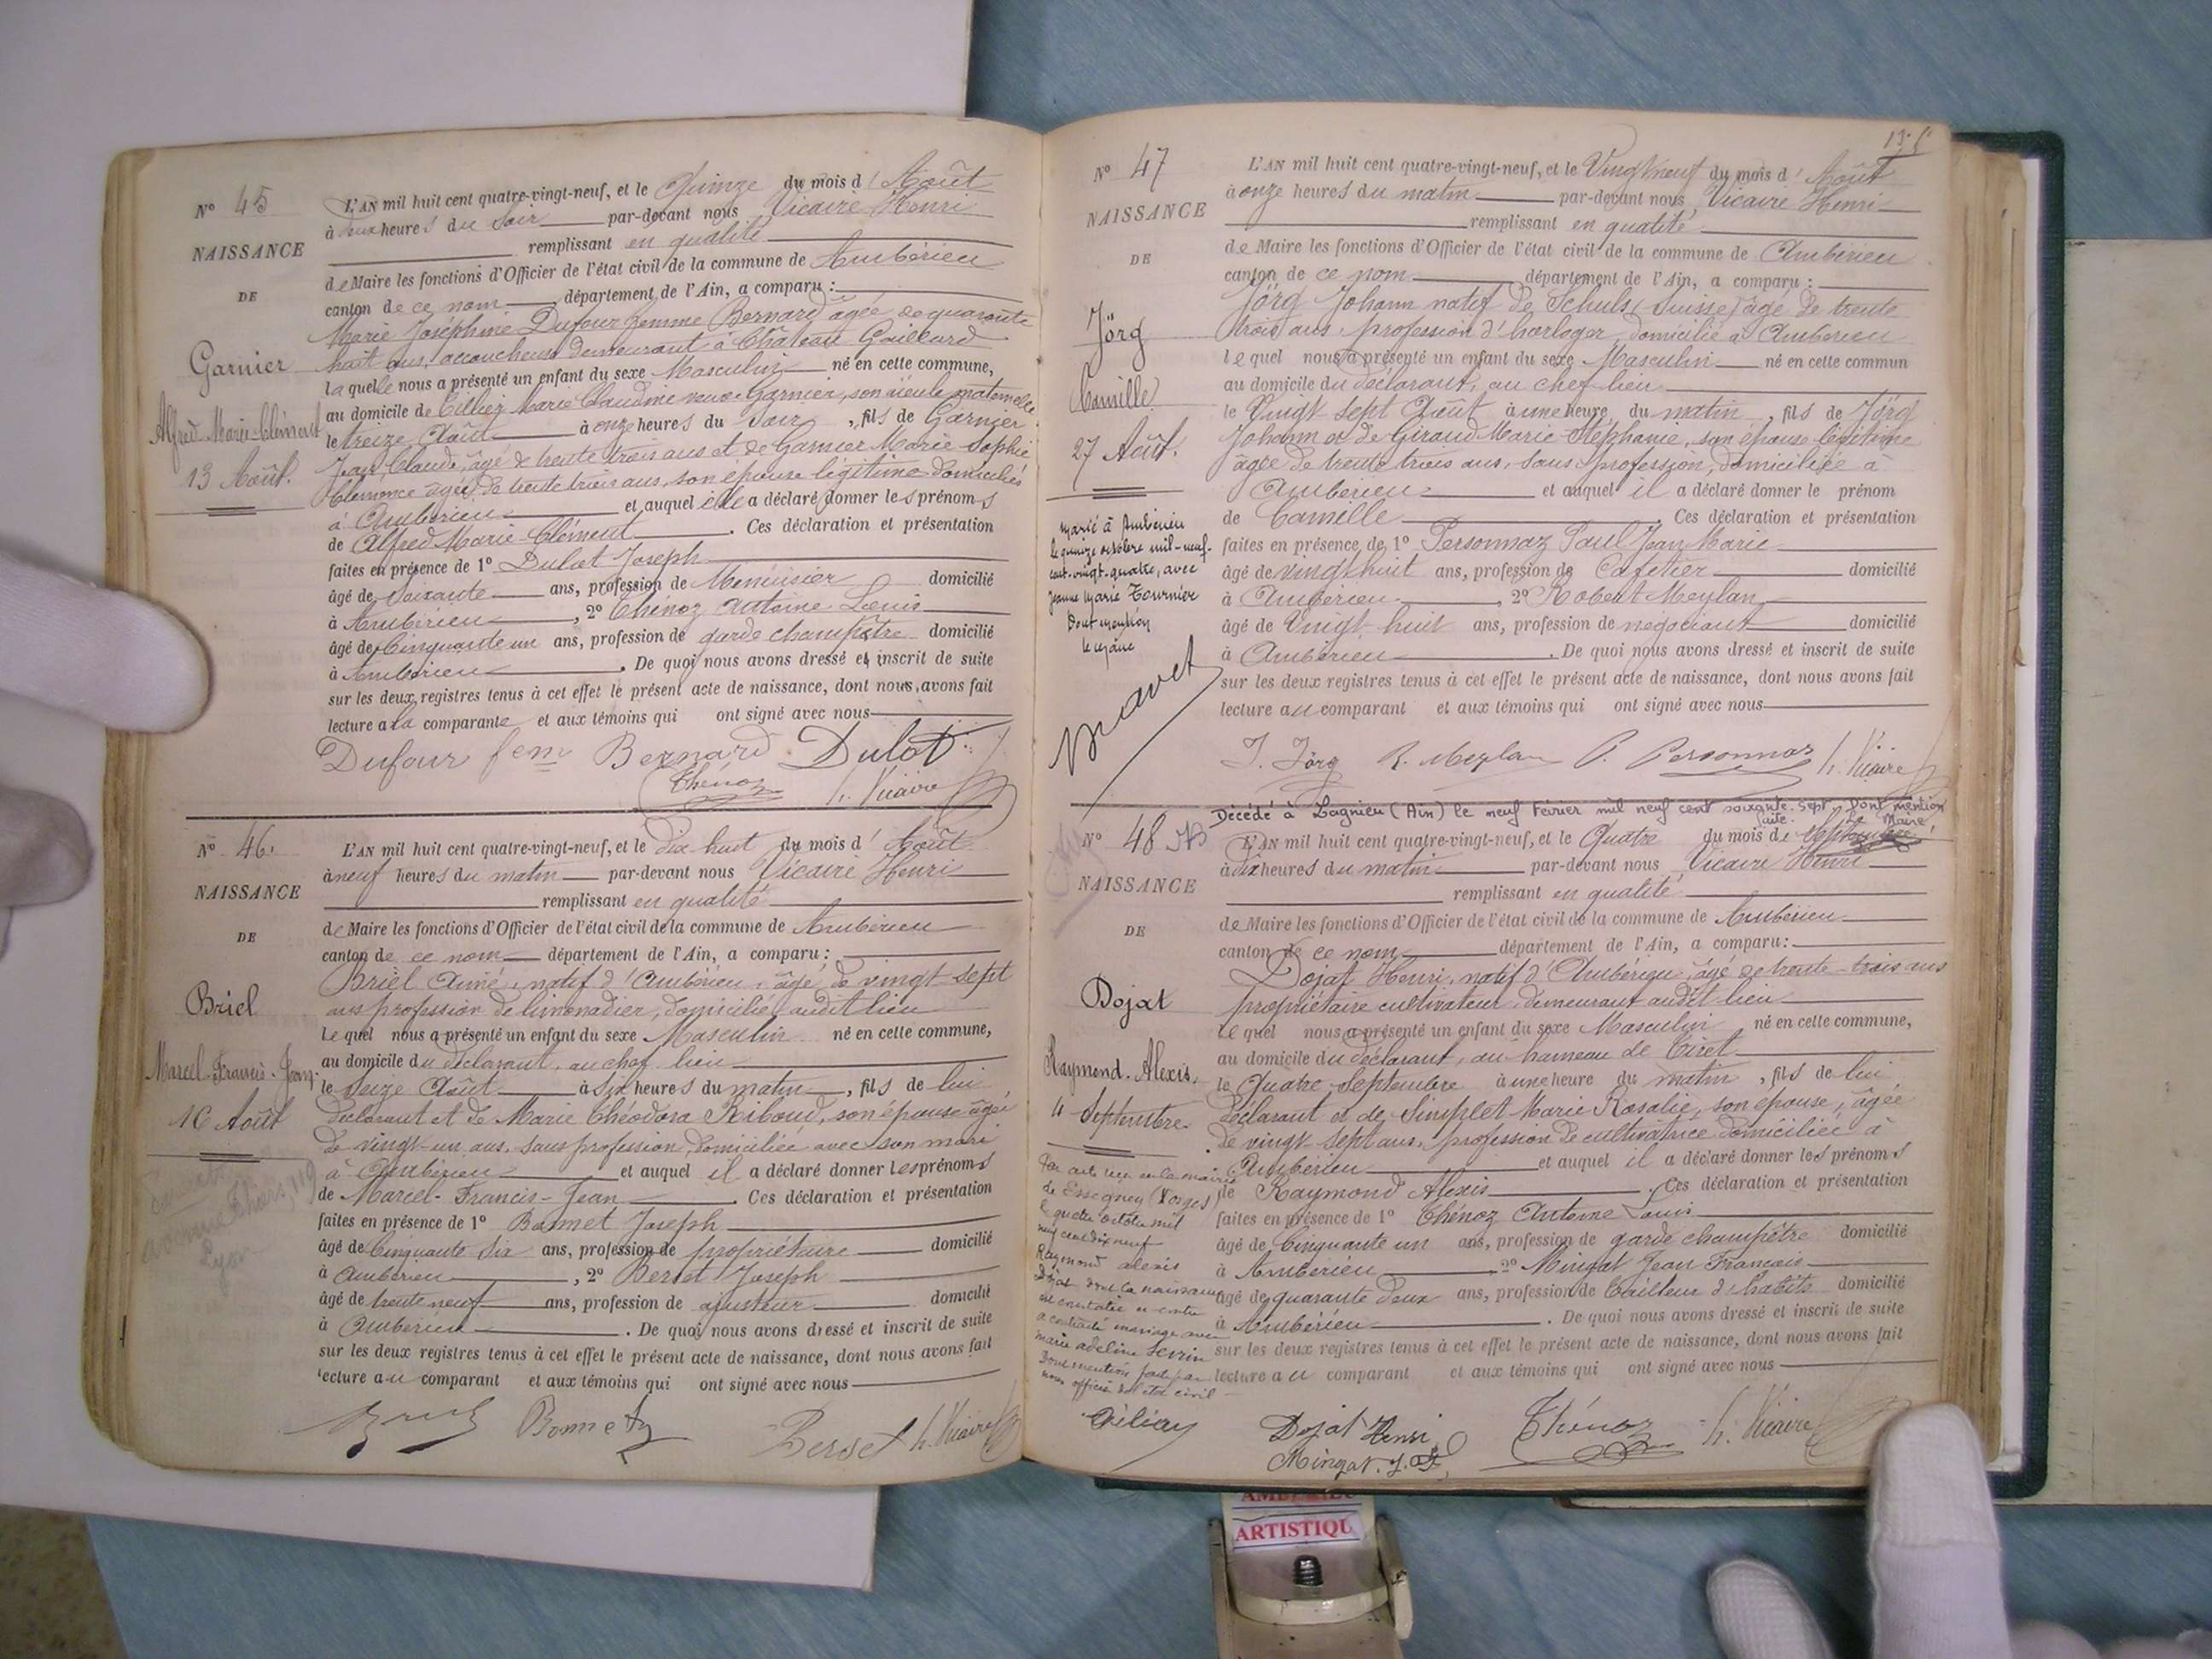 N° 45
NAISSANCE
DE
Garnier
Alfred Marie-Clément
13 Août.
L'AN mil huit cent quatre-vingt-neuf, et le Quinze du mois d'Août
à deux heures du soir par-devant nous Vicaire Henri
remplissant en qualité
de Maire les fonctions d'Officier de l'état civil de la commune de Ambérieu
canton de ce nom département de l'Ain, a comparu :
Marie Joséphine Dufour femme Bernard âgée de quarante
huit ans, accoucheuse demeurant à Château Gaillard
laquelle nous a présenté un enfant du sexe Masculin né en cette commune,
au domicile de Tillier Marie Claudine veuve Garnier, son aïeule maternelle
le treize Août à onze heures du soir, fils de Garnier
Jean Claude, âgé de trente trois ans et de Garnier Marie Sophie
Clémence âgée de trente trois ans, son épouse légitime domiciliés
à Ambérieu et auquel elle a déclaré donner les prénoms
de Alfred Marie-Clément. Ces déclaration et présentation
faites en présence de 1° Dulot Joseph
âgé de Soixante ans, profession de Menuisier domicilié
à Ambérieu, 2° Thénoz Antoine Louis
âgé de Cinquante un ans, profession de garde champêtre domicilié
à Ambérieu. De quoi nous avons dressé et inscrit de suite
sur les deux registres tenus à cet effet le présent acte de naissance, dont nous avons fait
lecture a la comparante et aux témoins qui ont signé avec nous
Dufour fem Bernard Dulot
Thénoz h. Vicaire
N° 46.
NAISSANCE
DE
Briel
Marcel-Francis-Jean.
16 Août
avenue Thiers, 119
Lyon
L'AN mil huit cent quatre-vingt-neuf, et le dix-huit du mois d'Août
à neuf heures du matin par-devant nous Vicaire Henri
remplissant en qualité
de Maire les fonctions d'Officier de l'état civil de la commune de Ambérieu
canton de ce nom département de l'Ain, a comparu :
Briel Aimé, natif d'Ambérieu, âgé de vingt-sept
ans profession de limonadier, domicilié audit lieu
Lequel nous a présenté un enfant du sexe Masculin né en cette commune,
au domicile du déclarant, au chef lieu
le seize Août à six heures du matin, fils de lui
déclarant et de Marie Théodora Riboud, son épouse âgée
de vingt-un ans, sans profession, domiciliée avec son mari
à Ambérieu et auquel il a déclaré donner les prénoms
de Marcel-Francis-Jean. Ces déclaration et présentation
faites en présence de 1° Bonnet Joseph
âgé de Cinquante six ans, profession de propriétaire domicilié
à Ambérieu, 2° Berset Joseph
âgé de trente neuf ans, profession de ajusteur domicilié
à Ambérieu. De quoi nous avons dressé et inscrit de suite
sur les deux registres tenus à cet effet le présent acte de naissance, dont nous avons fait
lecture au comparant et aux témoins qui ont signé avec nous
Briel Bonnet Berset h. Vicaire
N° 47
NAISSANCE
DE
Jörg
Camille
27 Août.
marié à Ambérieu
le quinze octobre mil-neuf-
cent-vingt-quatre, avec
Jeanne Marie Tournier
Dont mention
le maire
L'AN mil huit cent quatre-vingt-neuf, et le Vingt neuf du mois d'Août
à onze heures du matin par-devant nous Vicaire Henri
remplissant en qualité
de Maire les fonctions d'Officier de l'état civil de la commune de Ambérieu
canton de ce nom département de l'Ain, a comparu :
Jörg Johann natif de Schuls (Suisse) âgé de trente
trois ans, profession d'horloger, domicilié à Ambérieu
lequel nous a présenté un enfant du sexe Masculin né en cette commun
au domicile du déclarant, au chef lieu
le Vingt sept Août à une heure du matin, fils de Jörg
Johann et de Giraud Marie-Stéphanie, son épouse légitime
âgée de trente trois ans, sans profession, domiciliée à
Ambérieu et auquel il a déclaré donner le prénom
de Camille. Ces déclaration et présentation
faites en présence de 1° Personnaz Paul Jean Marie
âgé de vingt huit ans, profession de Cafetier domicilié
à Ambérieu, 2° Robert Meylan
âgé de Vingt huit ans, profession de négociant domicilié
à Ambérieu. De quoi nous avons dressé et inscrit de suite
sur les deux registres tenus à cet effet le présent acte de naissance, dont nous avons fait
lecture au comparant et aux témoins qui ont signé avec nous
J. Jörg R. Meylan P. Personnaz h. Vicaire
Décédé à Lagnieu (Ain) le neuf Février mil neuf cent soixante-sept. Dont mention
Le Maire
N° 48
NAISSANCE
DE
Dojat
Raymond. Alexis.
4 Septembre.
Par acte reçu en la mairie
de Essegney (Vosges)
le quatre octobre mil
neuf cent dix neuf
Raymond alexis
Dojat dont la naissance
est constatée ci-contre
a contracté mariage avec
marie adeline
Dont mention faite par
nous officier de l'état civil
L'AN mil huit cent quatre-vingt-neuf, et le Quatre du mois de Septembre
à dix heures du matin par-devant nous Vicaire Henri
remplissant en qualité
de Maire les fonctions d'Officier de l'état civil de la commune de Ambérieu
canton de ce nom département de l'Ain, a comparu :
Dojat Henri, natif d'Ambérieu, âgé de trente-trois ans
propriétaire cultivateur, demeurant audit lieu
Lequel nous a présenté un enfant du sexe Masculin né en cette commune,
au domicile du déclarant, au hameau de Tiret
le Quatre Septembre à une heure du matin, fils de lui
déclarant et de Simplet Marie Rosalie, son épouse, âgée
de vingt-sept ans, profession de cultivatrice domiciliée à
Ambérieu et auquel il a déclaré donner les prénoms
de Raymond Alexis. Ces déclaration et présentation
faites en présence de 1° Thénoz Antoine Louis
âgé de Cinquante un ans, profession de garde champêtre domicilié
à Ambérieu 2° Mingat Jean Francois
âgé de quarante deux ans, profession de Tailleur d'habits domicilié
à Ambérieu. De quoi nous avons dressé et inscrit de suite
sur les deux registres tenus à cet effet le présent acte de naissance, dont nous avons fait
lecture au comparant et aux témoins qui ont signé avec nous
Dojat Henri Thénoz h. Vicaire
Mingat. J. F.
ARTISTIQU